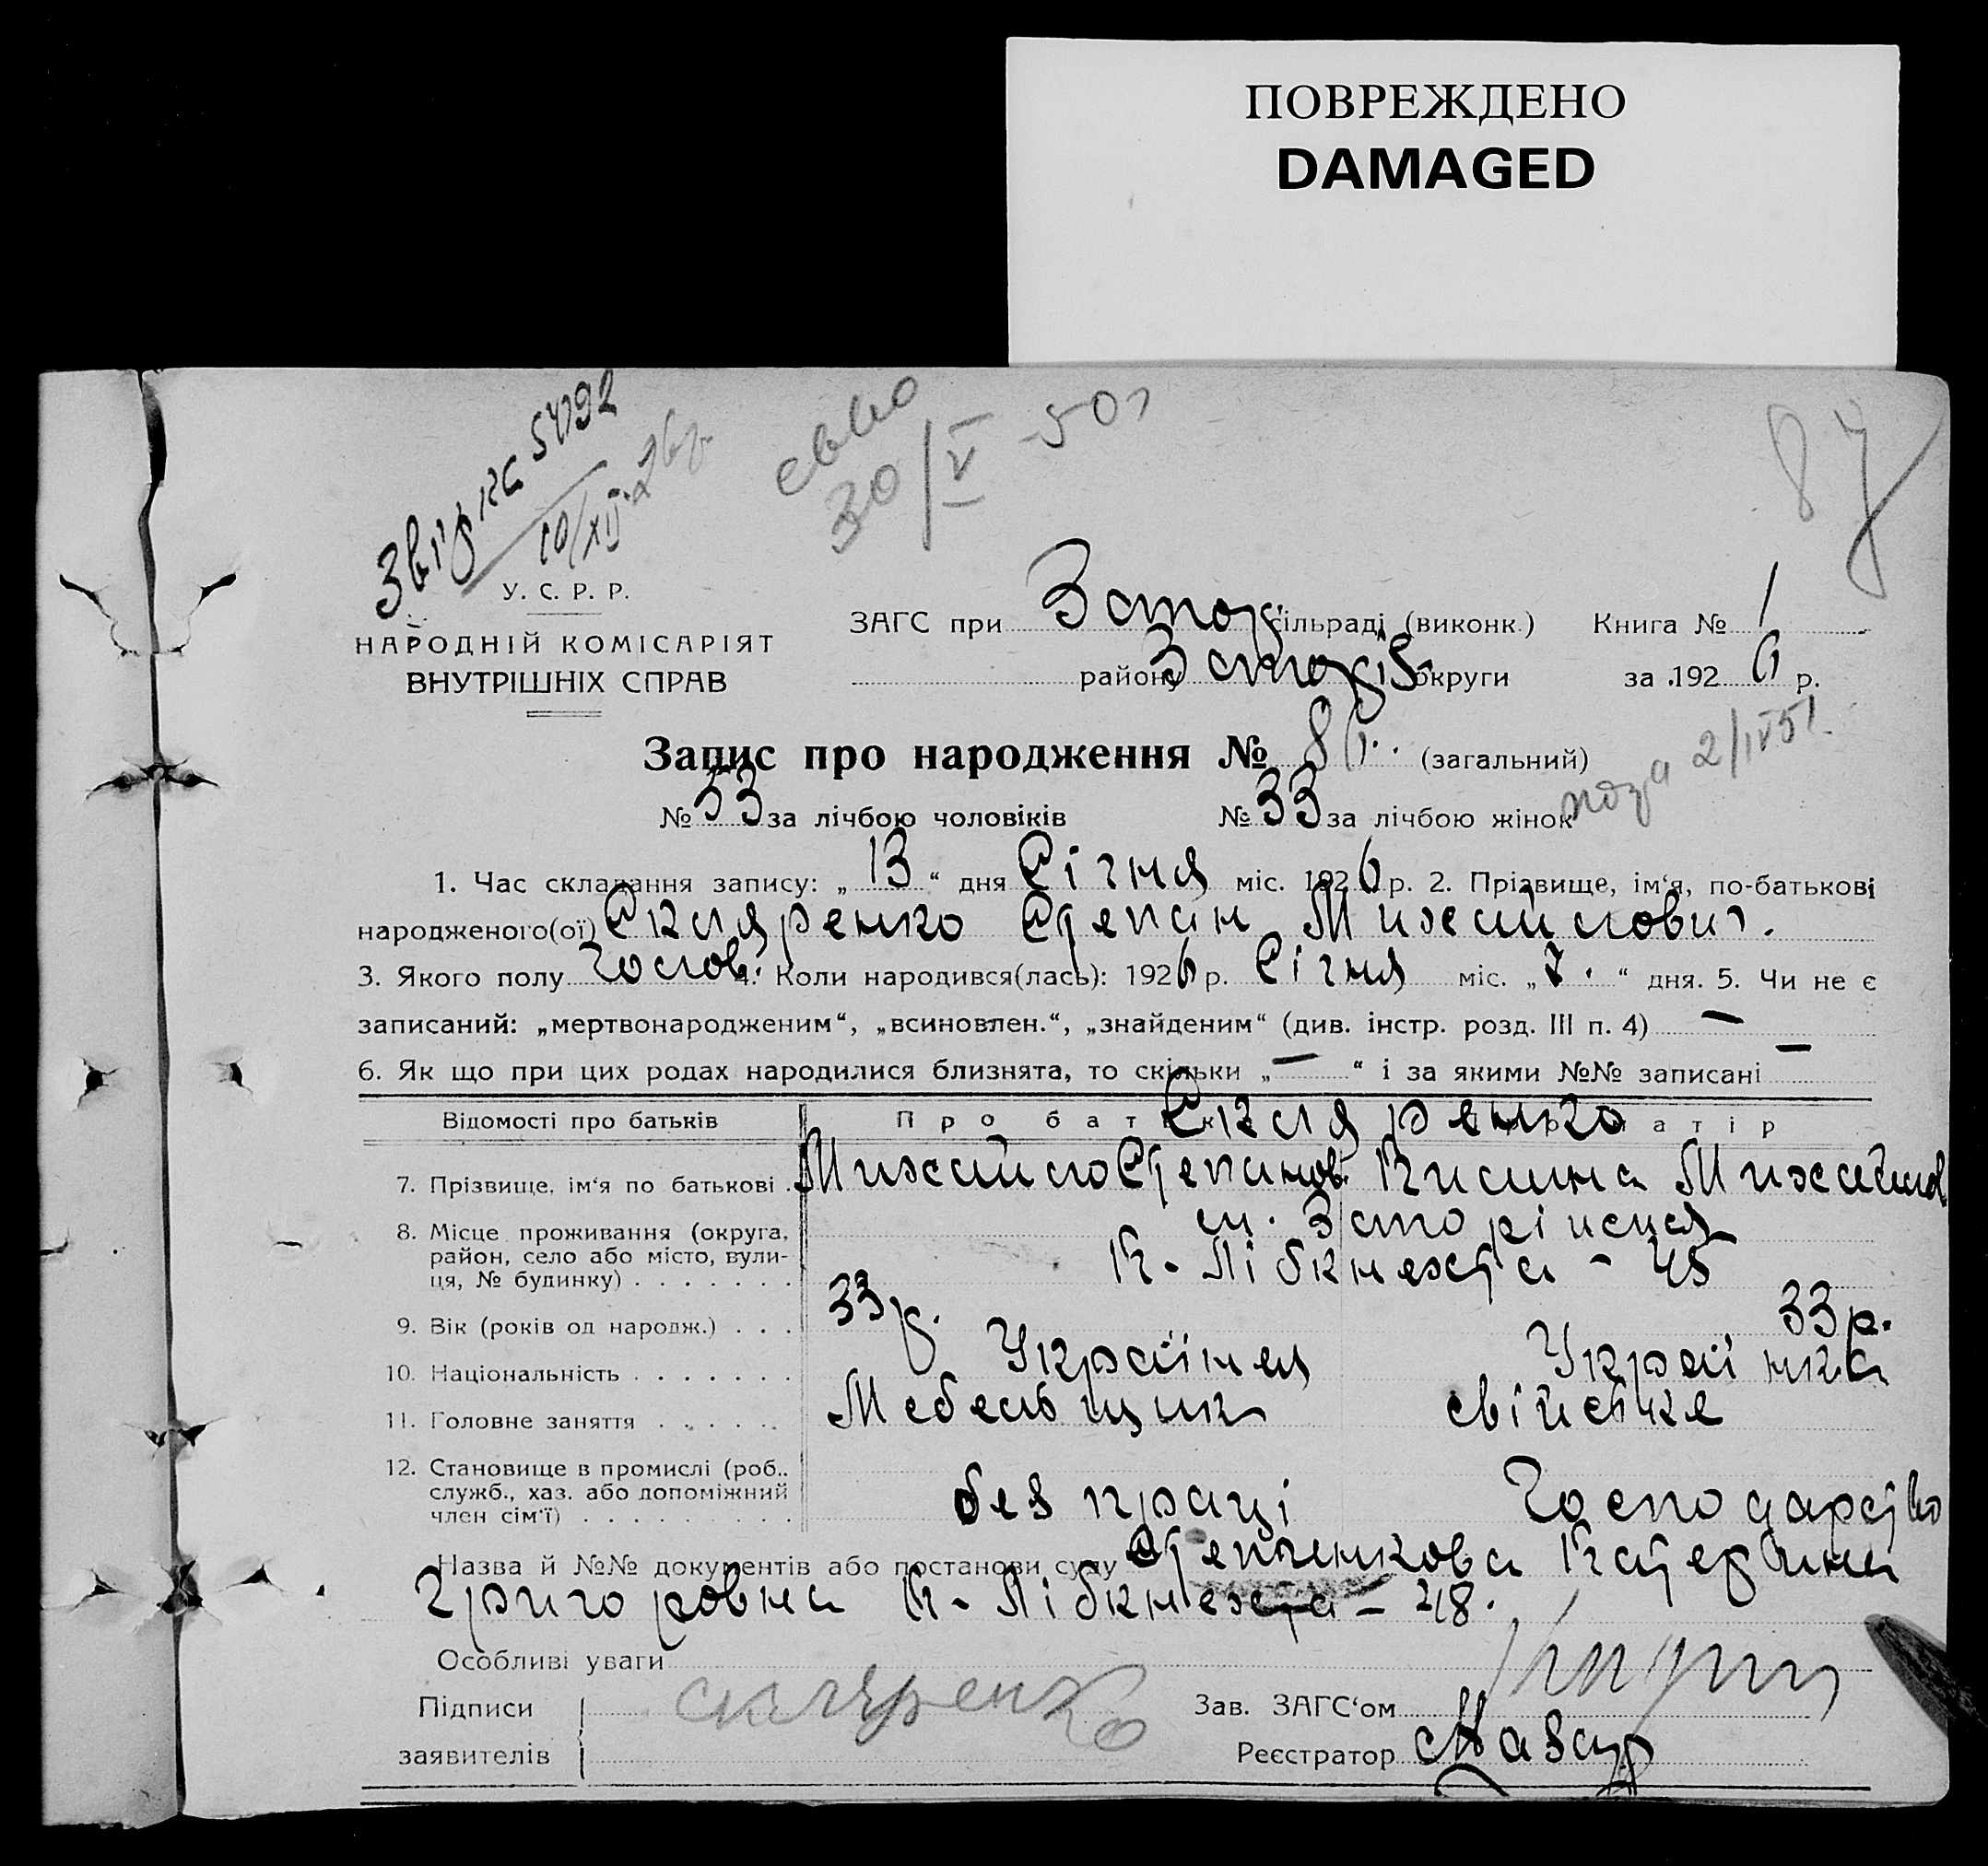 ПОВРЕЖДЕНО
DAMAGED
30/V-50
87
10/XII
У. С. Р. Р.
НАРОДНІЙ КОМІСАРІЯТ
ВНУТРІШНІХ СПРАВ
ЗАГС при Запор сільраді (виконк.) Книга № 1
району Запоріз округи за 1926 р.
Запис про народження № 86 (загальний)
2/IV 51
№ 53 за лічбою чоловіків № 33 за лічбою жінок
1. Час складання запису: „13“ дня Січня міс. 1926 р. 2. Прізвище, ім‘я, по-батькові
народженого(ої) Скляренко Степан Михайлович.
3. Якого полу Чолов. 4. Коли народився(лась): 1926 р. Січня міс. „7.“ дня. 5. Чи не є
записаний: „мертвонародженим“, „всиновлен.“, „знайденим“ (див. інстр. розд. III п. 4) —
6. Як що при цих родах народилися близнята, то скільки „—“ і за якими №№ записані —
Відомості про батьків Про батька Про матір
Скляренко
7. Прізвище, ім‘я по батькові Михайло Степанов. Михайлов
8. Місце проживання (округа, район, село або місто, вулиця, № будинку)
К. Лібкнехта - 45
9. Вік (років од народж.) 33 р. 33 р.
10. Національність Українец Українка
11. Головне заняття Мебельщик свійське
12. Становище в промислі (роб., служб., хаз. або допоміжний член сім‘ї) без праці Господарство
Назва й №№ документів або постанови суду Степанкова Катерина
Григоровна К. Лібкнехта - 48.
Особливі уваги
Підписи заявителів Скляренко
Зав. ЗАГС‘ом
Реєстратор Мазур